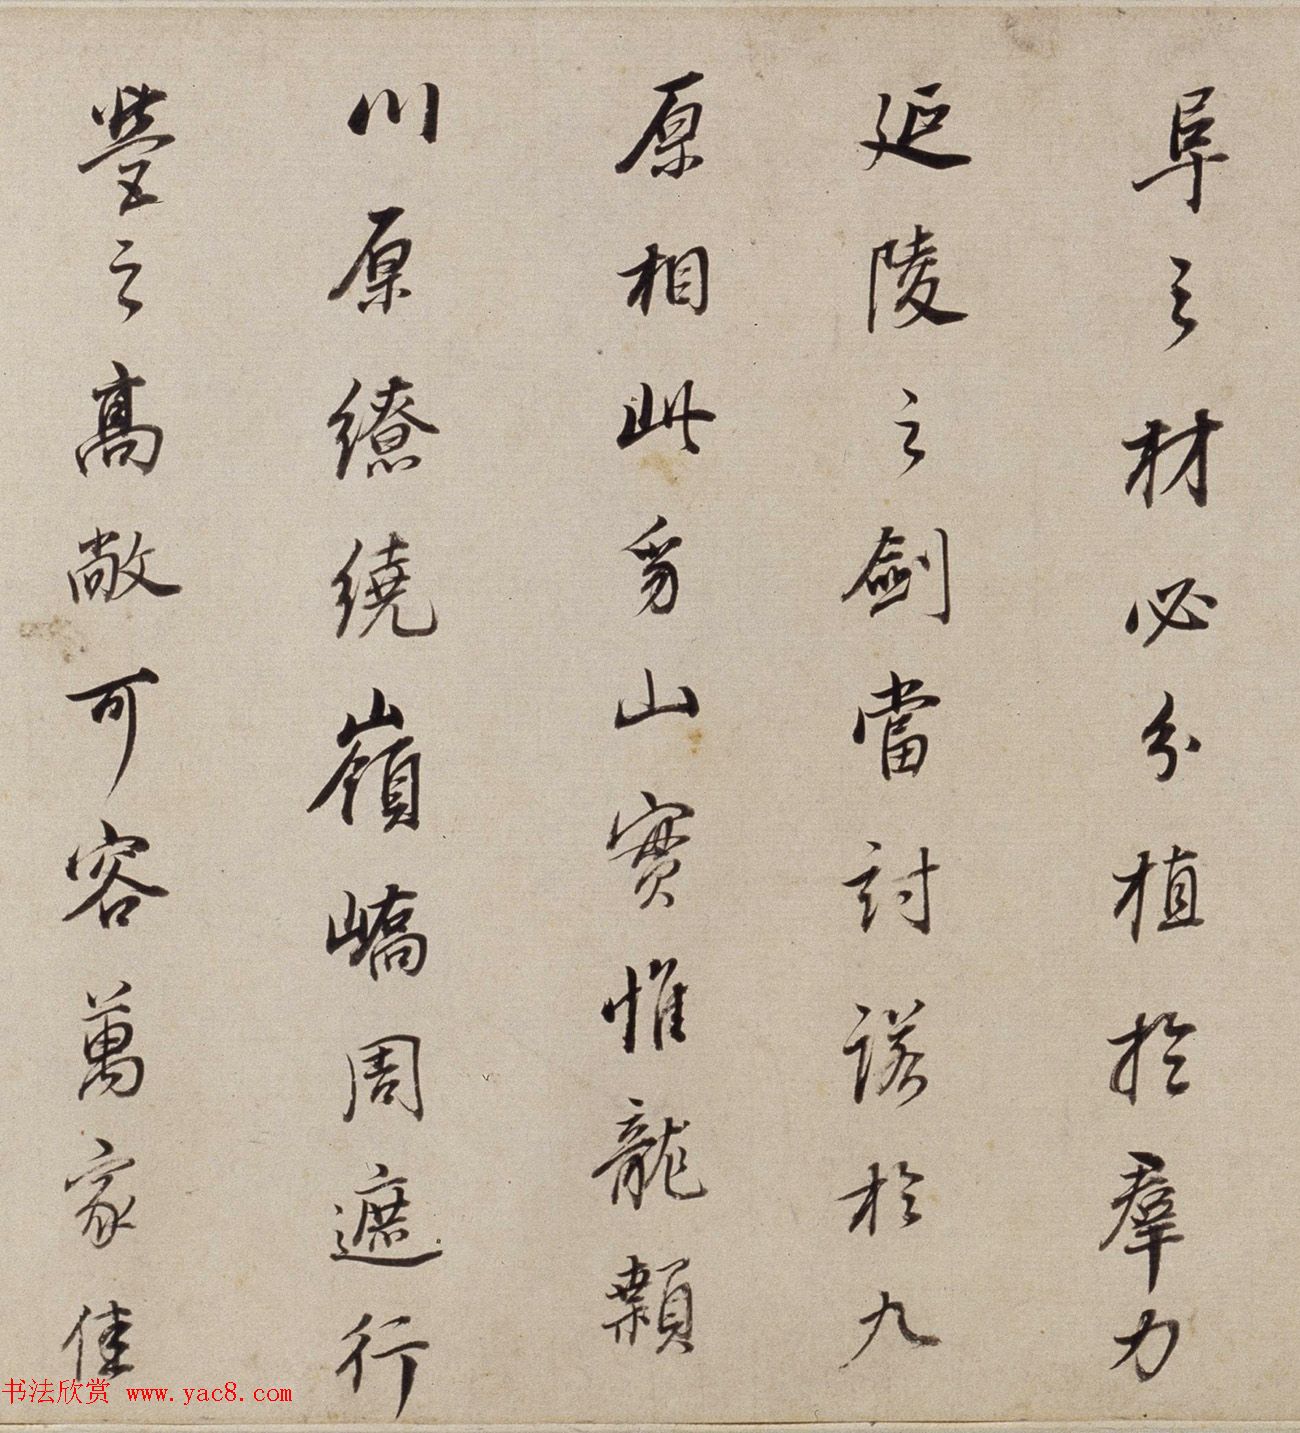 阜之材必分植於羣力
延陵之劍當討諾於九
原相此筠山實惟龍顙
川原繚繞嶺嶠周遮行
塋之高敞可容萬家佳
书法欣赏 www.yac8.com